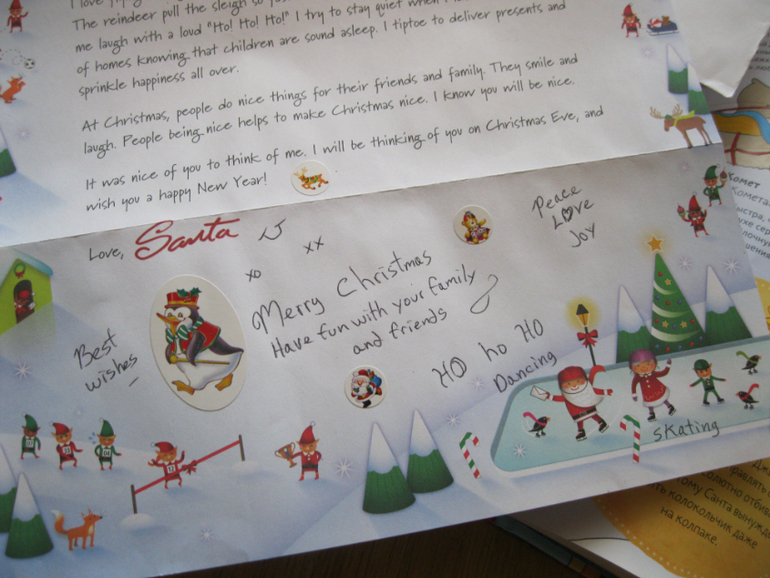 The reindeer pull the sleigh so
me laugh with a loud "Ho! Ho! Ho!" I try to stay quiet when
of homes knowing that children are sound asleep. I tiptoe to deliver presents and
sprinkle happiness all over.
At Christmas, people do nice things for their friends and family. They smile and
laugh. People being nice helps to make Christmas nice. I know you will be nice.
It was nice of you to think of me. I will be thinking of you on Christmas Eve, and
wish you a happy New Year!
Love, Santa
xo
xx
Peace
Love
Joy
Merry Christmas
Have fun with your family
and friends
Best
wishes
HO ho HO
Dancing
skating
Комет
Комета
на колпаке.
колокольчик даже
тому Санта вынужде